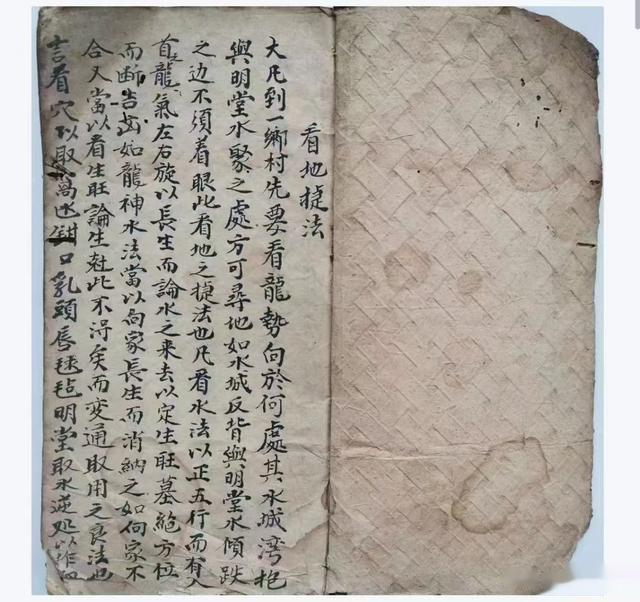 看地捷法
大凡到一鄉村先要看龍勢向於何處其水城湾抱
與明堂水聚之處方可尋地如水城反背與明堂水傾跌
之边不須着眼此看地之捷法也凡看水法以正五行而有入
首龍氣左右旋以長生而論水之來去以定生旺墓絶方位
而断吉凶如龍神水法當以向家長生而消納之如向家不
合又當以看生旺論生尅此不得矣而变通取用之良法也
言看穴以取窩出鉗口乳頭唇毬毡明堂取水逆处以作